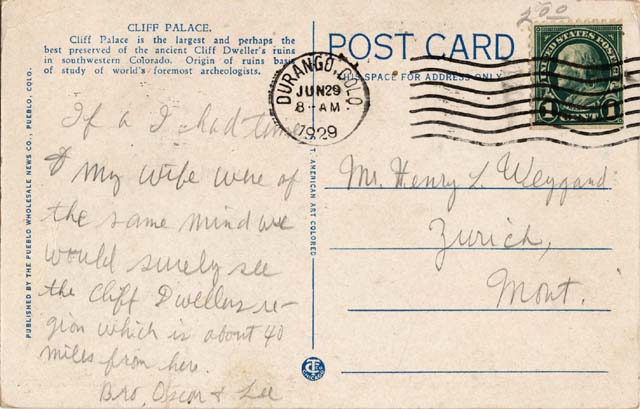 CLIFF PALACE.
Cliff Palace is the largest and perhaps the
best preserved of the ancient Cliff Dweller's ruins
in southwestern Colorado. Origin of ruins basis
of study of world's foremost archeologists.
If a I had time
& my wife were of
the same mind we
would surely see
the Cliff Dwellers re-
gion which is about 40
miles from here.
Bro, Oscar & Lee
PUBLISHED BY THE PUEBLO WHOLESALE NEWS CO., PUEBLO, COLO.
C. T. AMERICAN ART COLORED
POST CARD
THIS SPACE FOR ADDRESS ONLY
DURANGO, COLO.
JUN 29
8-AM
1929
2.00
UNITED STATES POSTAGE
1 CENT 1
Mr. Henry L. Weygand
Zurich,
Mont.
CHICAGO